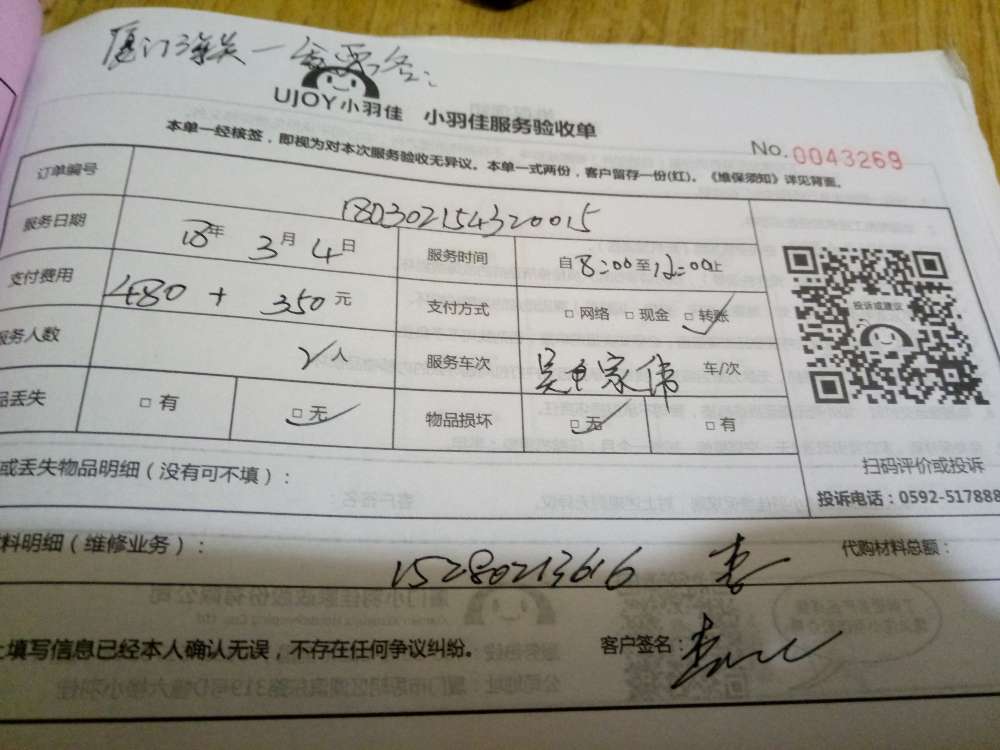 厦门海关一
UJOY小羽佳 小羽佳服务验收单
No. 0043269
本单一经核签，即视为对本次服务验收无异议。本单一式两份，客户留存一份(红)。《维保须知》详见背面。
订单编号 180302154320015
服务日期 18年 3月4日 服务时间 自8:00至12:00止
支付费用 480 + 350元 支付方式 □网络 □现金 □转账
服务人数 2人 服务车次 家伟 车/次
品丢失 □有 □无 物品损坏 □无 □有
投诉或建议
扫码评价或投诉
投诉电话：0592-517888
或丢失物品明细（没有可不填）：
料明细（维修业务）： 代购材料总额：
15280213616 李
上填写信息已经本人确认无误，不存在任何争议纠纷。 客户签名：李